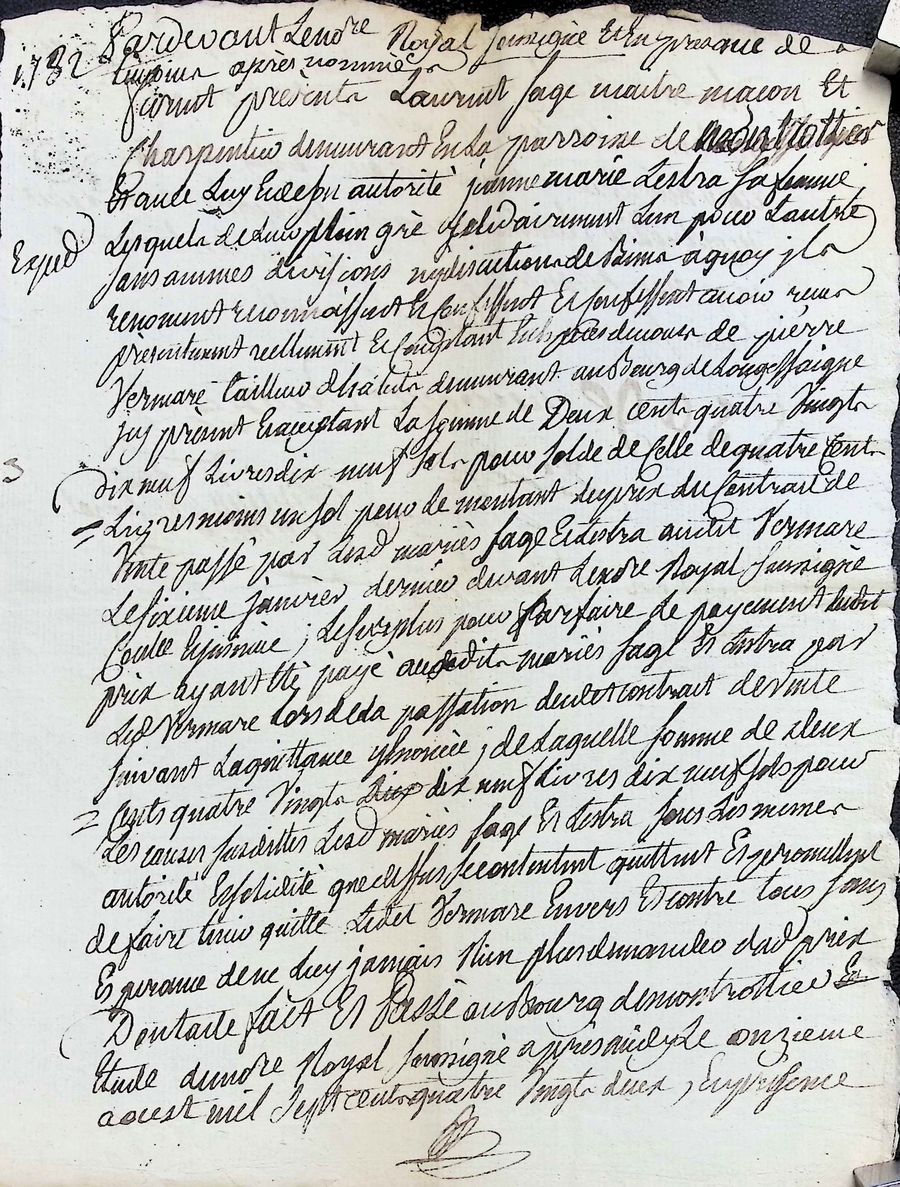 1782 Pardevant Le nore Royal soussigné Et En presance de
temoins après nommés
furent présents Laurent fage maitre maçon Et
Charpentier demeurant En La parroisse de
Et de Luy En desn autorité jeanne marie Lestra sa femme
Exped Lesquels de Leur plein gré solidairement L'un pour L'autre
sans aucunes divisions ny discutions de Biens à quoy ils
renoncent reconnoissent Et Confessent Et Confessent avoir recus
présentement réellement Et Comptant En Espèces de cours de pierre
Vermare tailleur d'habits demeurant au Bourg de Longessaigne
jcy présent Et acceptant La somme de Deux Cents quatre Vingts
dix neuf Livres dix neuf sols pour solde de Celle de quatre Cents
= Livres moins un sol pour le montant du prix du Contrat de
Vente passé par Lesd mariés fage Et Lestra audit Vermare
Le sixieme janvier dernier devant Le nore Royal soussigné
Controllé ; Le surplus pour parfaire de payement dudit
prix ayant Eté payé auxdits mariés fage Et Lestra par
Led Vermare Lors de La passation dudit contract de Vente
suivant La quittance y Enoncée ; de Laquelle somme de deux
= Cents quatre Vingts dix neuf Livres dix neuf sols pour
Les causes susdittes Lesd mariés fage Et Lestra sous Les memes
autorité Et solidité que dessus se contentent quittent Et promettent
de faire tenir quitte Ledit Vermare Envers Et contre tous sans
Esperance de ne Luy jamais Rien plus demander dud prix
Dont acte fait Et Passé au Bourg de montrottier En
Etude du nore Royal soussigné après midy Le onzieme
aoust mil sept cents quatre Vingts deux , En presence